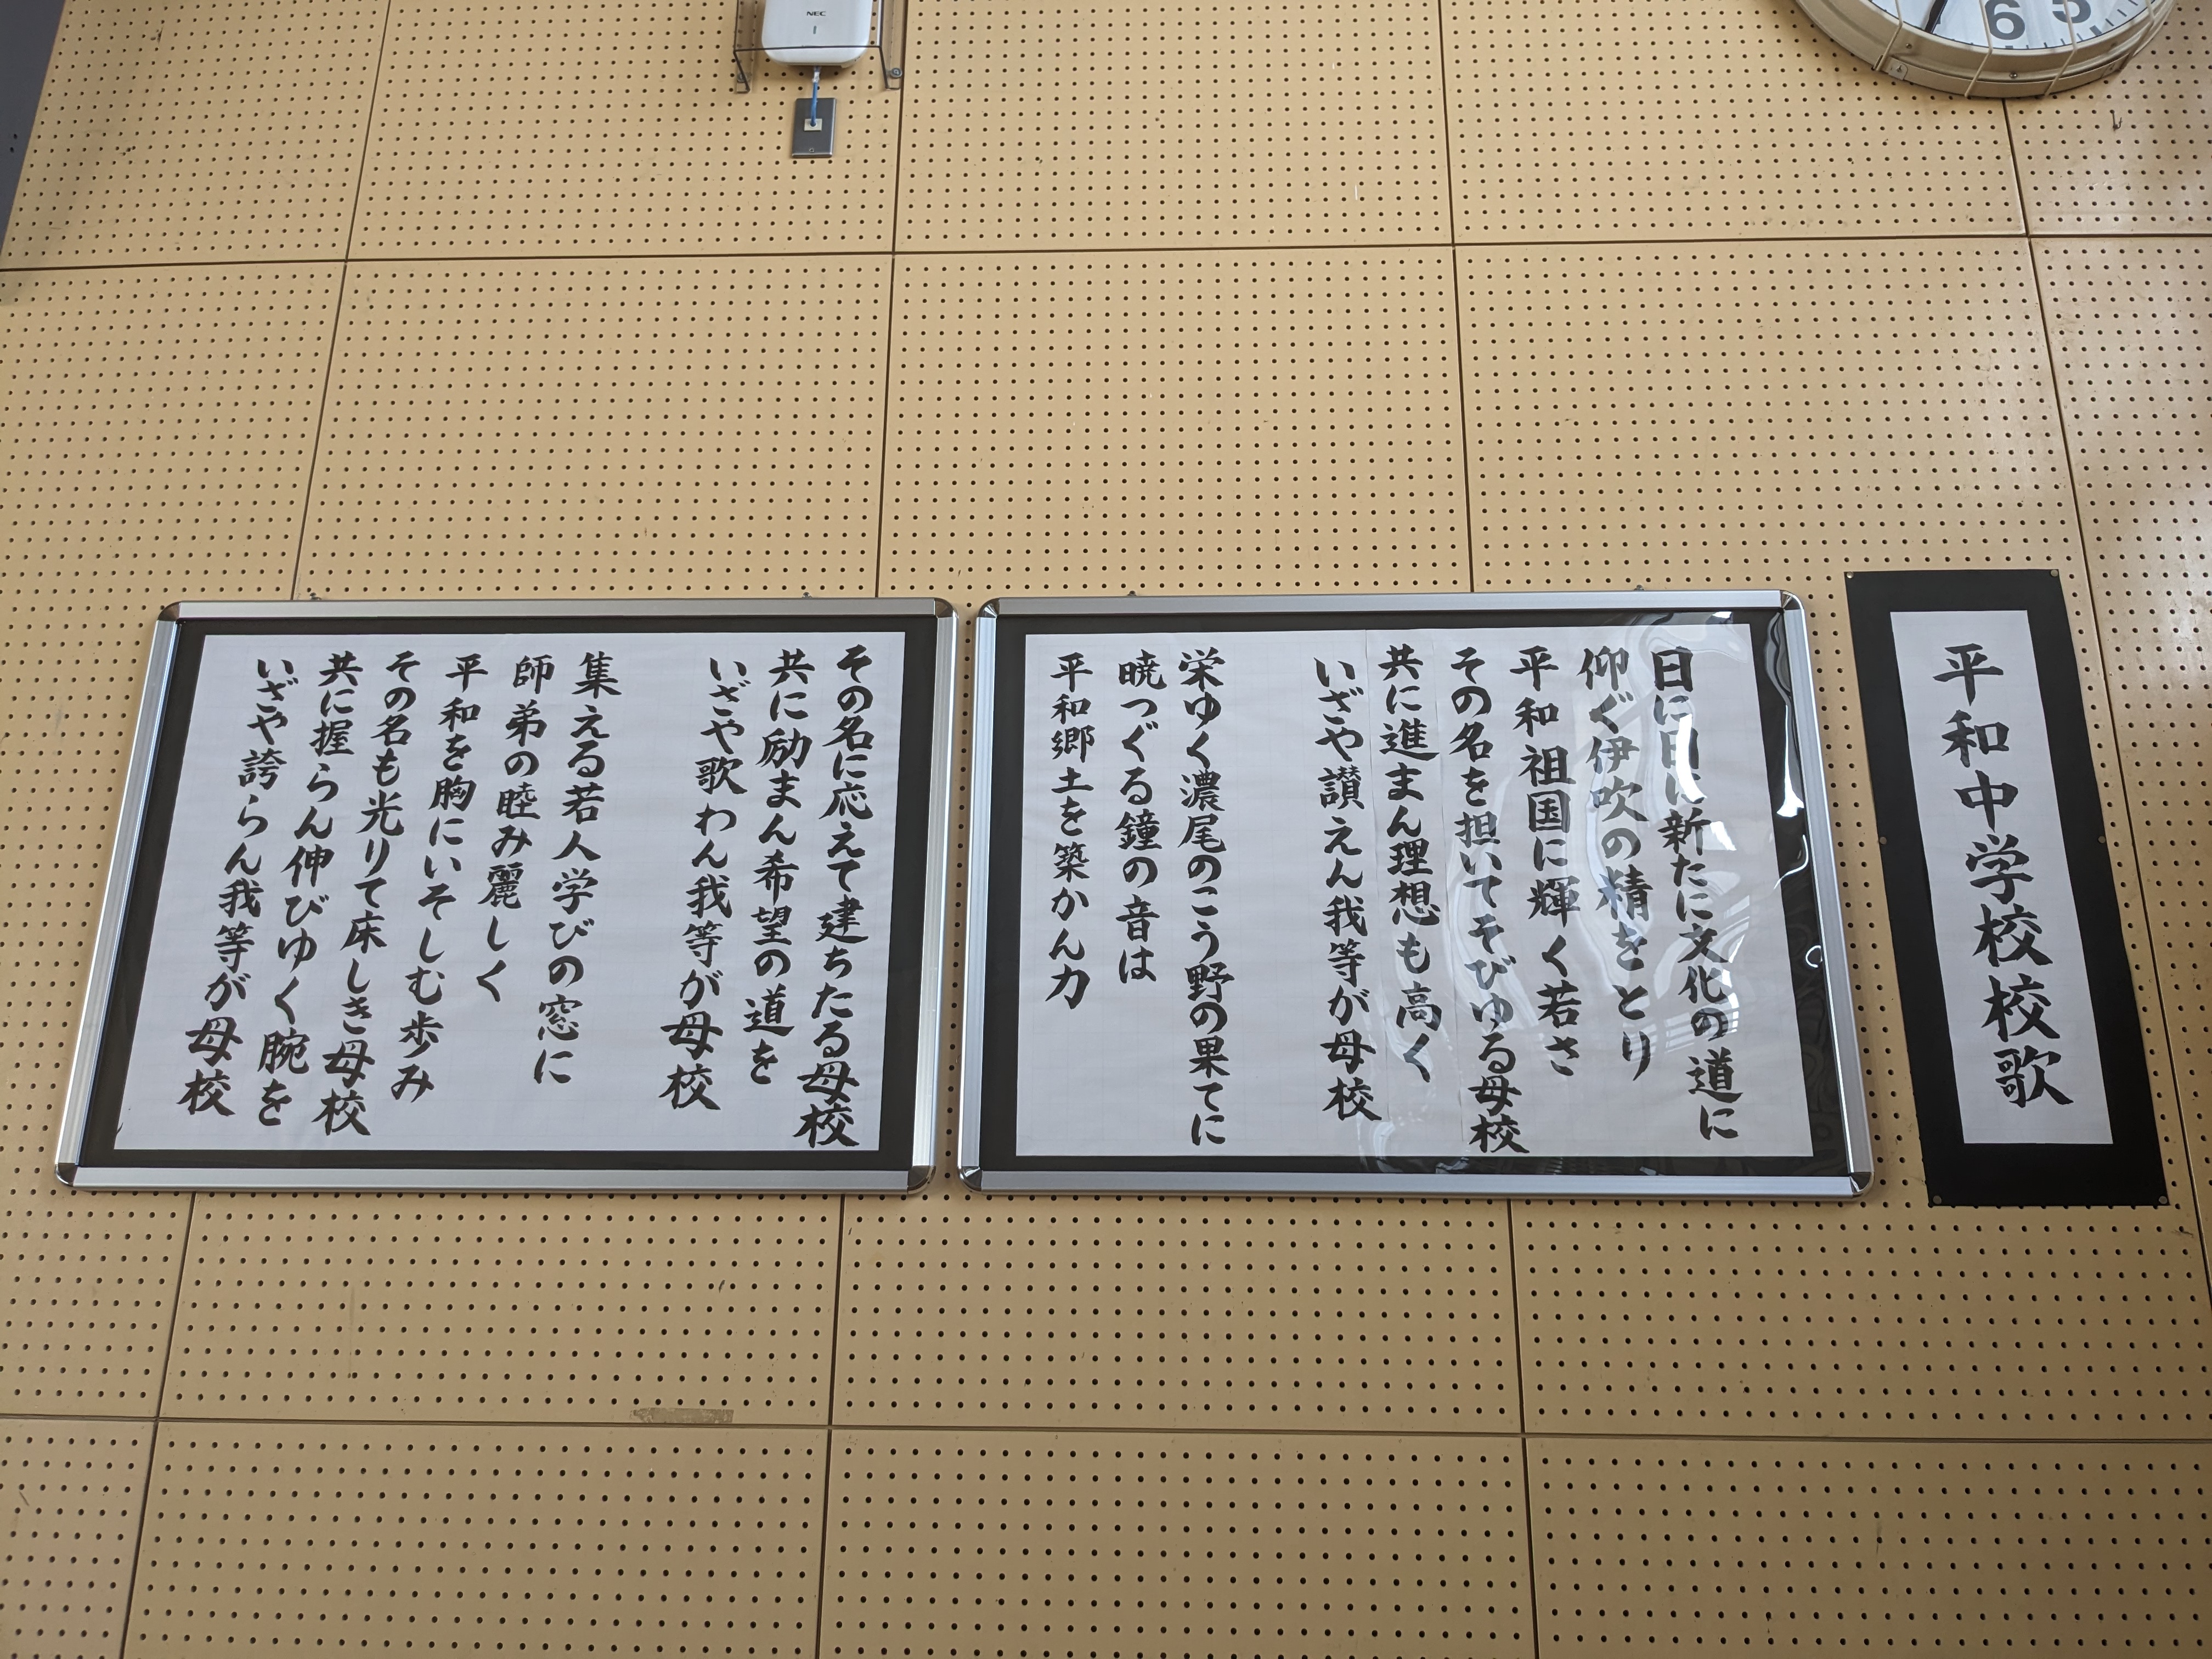 平和中学校校歌
日に日に新たに文化の道に
仰ぐ伊吹の精をとり
平和祖国に輝く若さ
その名を担いてそびゆる母校
共に進まん理想も高く
いざや讃えん我等が母校
栄ゆく濃尾のこう野の果てに
暁つぐる鐘の音は
平和郷土を築かん力
その名に応えて建ちたる母校
共に励まん希望の道を
いざや歌わん我等が母校
集える若人学びの窓に
師弟の睦み麗しく
平和を胸にいそしむ歩み
その名も光りて床しき母校
共に握らん伸びゆく腕を
いざや誇らん我等が母校
NEC
6
5